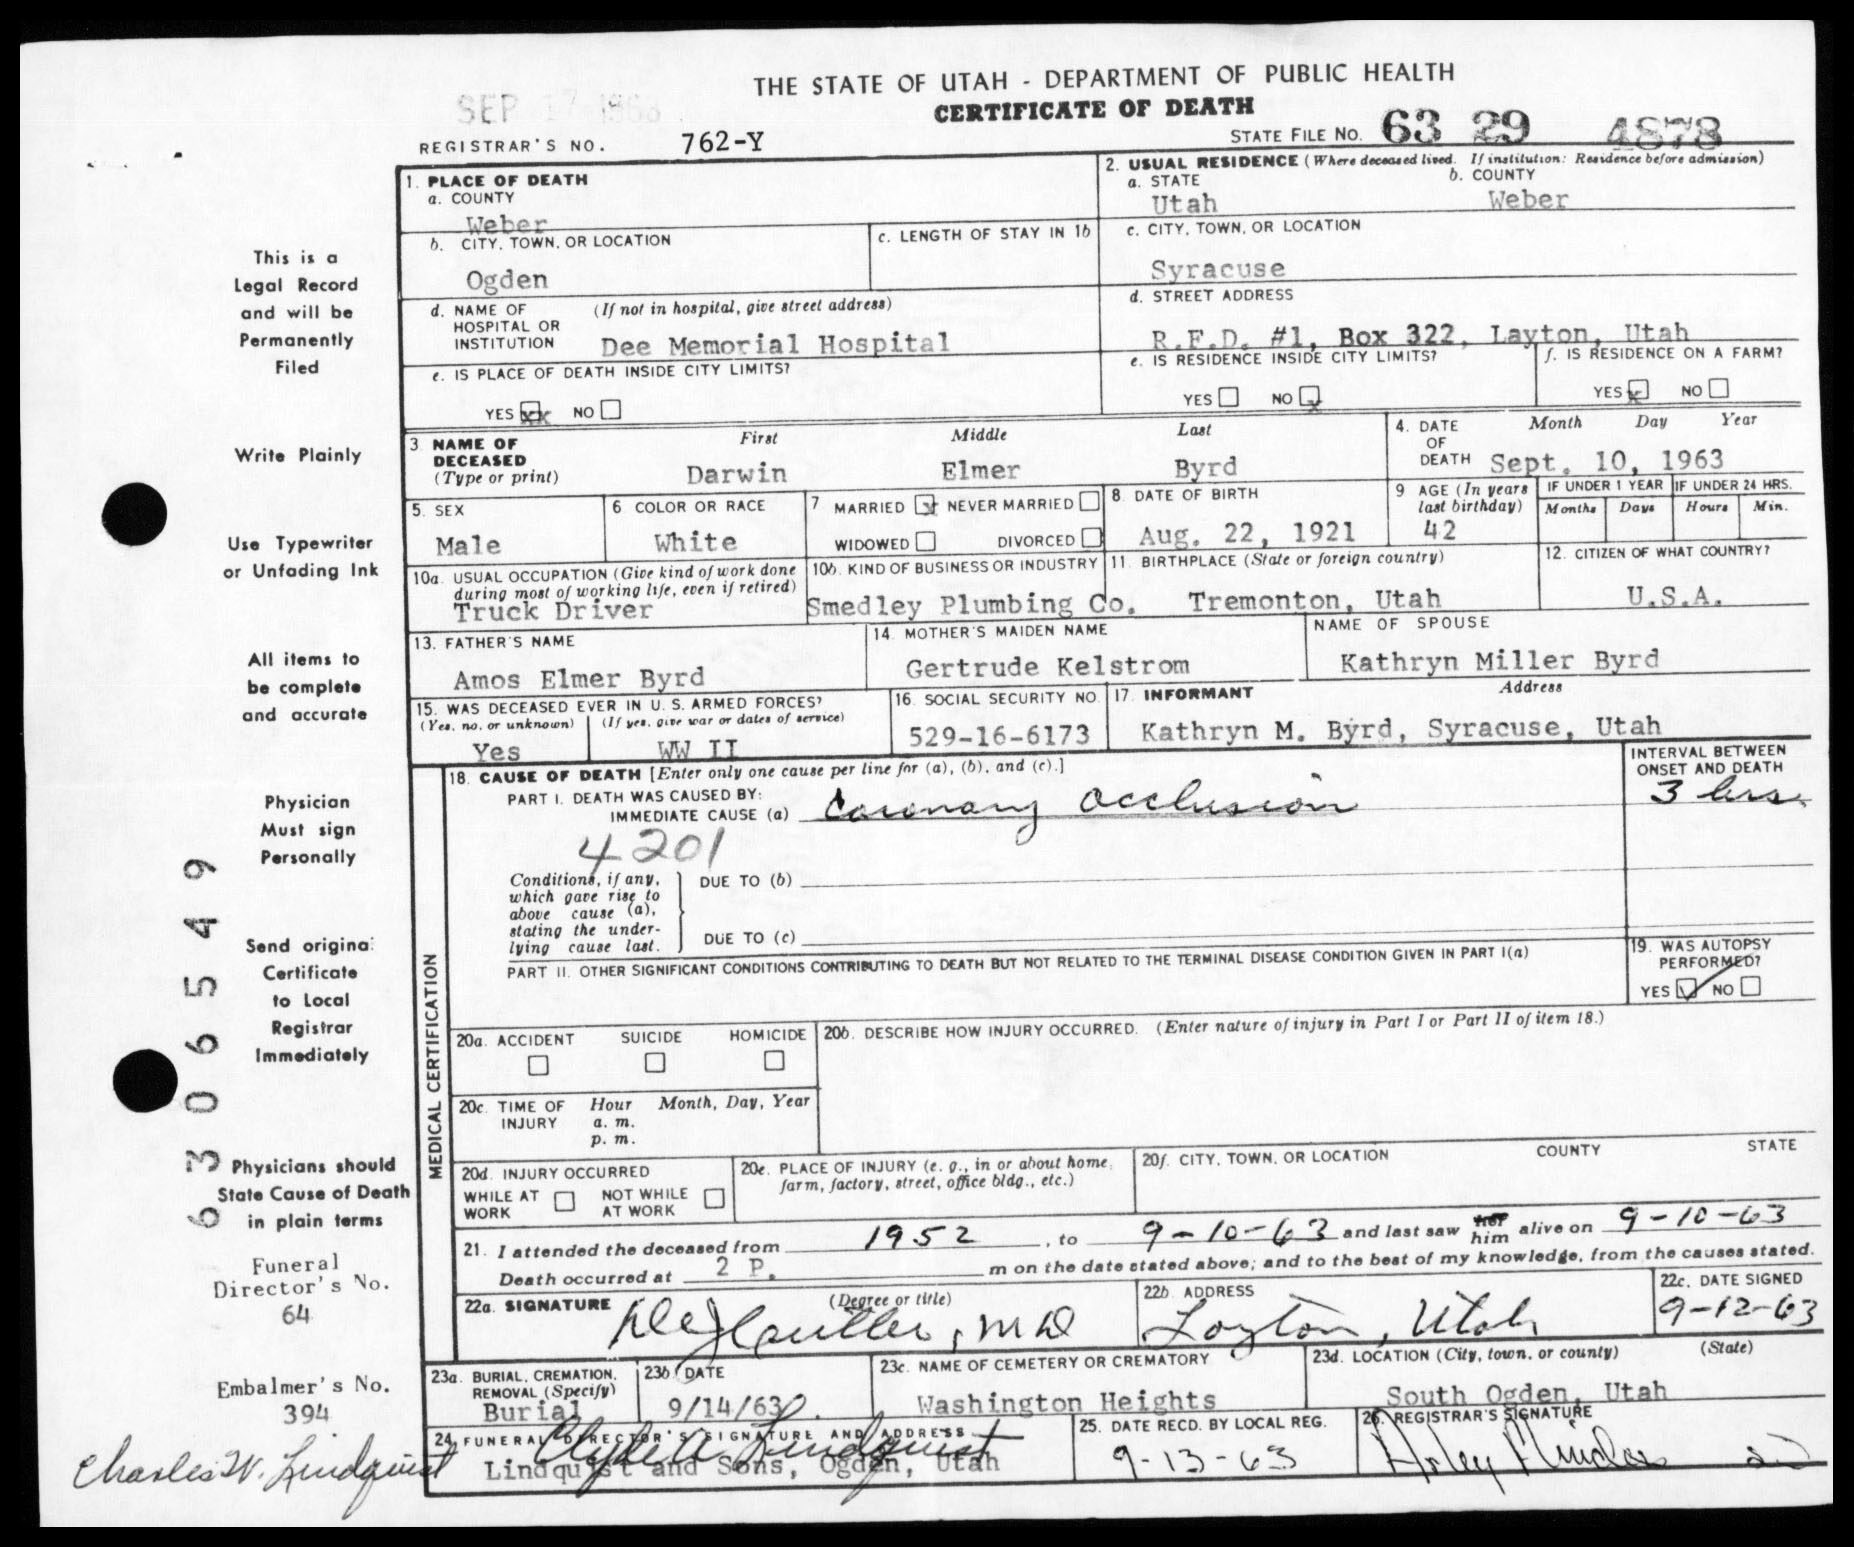 THE STATE OF UTAH - DEPARTMENT OF PUBLIC HEALTH
SEP 17 1963
CERTIFICATE OF DEATH
REGISTRAR'S NO. 762-Y
STATE FILE NO. 63 29 4878
1. PLACE OF DEATH
a. COUNTY
Weber
2. USUAL RESIDENCE (Where deceased lived. If institution: Residence before admission)
a. STATE
Utah
b. COUNTY
Weber
b. CITY, TOWN, OR LOCATION
Ogden
c. LENGTH OF STAY IN 1b
c. CITY, TOWN, OR LOCATION
Syracuse
d. NAME OF HOSPITAL OR INSTITUTION
(If not in hospital, give street address)
Dee Memorial Hospital
d. STREET ADDRESS
R.F.D. #1, Box 322, Layton, Utah
e. IS PLACE OF DEATH INSIDE CITY LIMITS?
YES xx NO
e. IS RESIDENCE INSIDE CITY LIMITS?
YES NO x
f. IS RESIDENCE ON A FARM?
YES x NO
3. NAME OF DECEASED
(Type or print)
First Middle Last
Darwin Elmer Byrd
4. DATE OF DEATH
Month Day Year
Sept. 10, 1963
5. SEX
Male
6 COLOR OR RACE
White
7 MARRIED x NEVER MARRIED
WIDOWED DIVORCED
8. DATE OF BIRTH
Aug. 22, 1921
9 AGE (In years last birthday)
42
IF UNDER 1 YEAR
Months Days
IF UNDER 24 HRS.
Hours Min.
10a. USUAL OCCUPATION (Give kind of work done during most of working life, even if retired)
Truck Driver
10b. KIND OF BUSINESS OR INDUSTRY
Smedley Plumbing Co.
11. BIRTHPLACE (State or foreign country)
Tremonton, Utah
12. CITIZEN OF WHAT COUNTRY?
U.S.A.
13. FATHER'S NAME
Amos Elmer Byrd
14. MOTHER'S MAIDEN NAME
Gertrude Kelstrom
NAME OF SPOUSE
Kathryn Miller Byrd
15. WAS DECEASED EVER IN U. S. ARMED FORCES?
(Yes, no, or unknown) (If yes, give war or dates of service)
Yes WW II
16. SOCIAL SECURITY NO.
529-16-6173
17. INFORMANT Address
Kathryn M. Byrd, Syracuse, Utah
MEDICAL CERTIFICATION
18. CAUSE OF DEATH [Enter only one cause per line for (a), (b), and (c).]
INTERVAL BETWEEN ONSET AND DEATH
PART I. DEATH WAS CAUSED BY:
IMMEDIATE CAUSE (a) Coronary occlusion
3 hrs.
4201
Conditions, if any, which gave rise to above cause (a), stating the underlying cause last.
DUE TO (b)
DUE TO (c)
PART II. OTHER SIGNIFICANT CONDITIONS CONTRIBUTING TO DEATH BUT NOT RELATED TO THE TERMINAL DISEASE CONDITION GIVEN IN PART I(a)
19. WAS AUTOPSY PERFORMED?
YES NO
20a. ACCIDENT SUICIDE HOMICIDE
20b. DESCRIBE HOW INJURY OCCURRED. (Enter nature of injury in Part I or Part II of item 18.)
20c. TIME OF INJURY
Hour Month, Day, Year
a. m.
p. m.
20d. INJURY OCCURRED
WHILE AT WORK NOT WHILE AT WORK
20e. PLACE OF INJURY (e. g., in or about home, farm, factory, street, office bldg., etc.)
20f. CITY, TOWN, OR LOCATION COUNTY STATE
21. I attended the deceased from 1952, to 9-10-63 and last saw her him alive on 9-10-63
Death occurred at 2 P. m on the date stated above; and to the best of my knowledge, from the causes stated.
22a. SIGNATURE (Degree or title)
MD
22b. ADDRESS
Layton, Utah
22c. DATE SIGNED
9-12-63
23a. BURIAL, CREMATION, REMOVAL (Specify)
Burial
23b. DATE
9/14/63
23c. NAME OF CEMETERY OR CREMATORY
Washington Heights
23d. LOCATION (City, town, or county) (State)
South Ogden, Utah
24. FUNERAL DIRECTOR'S SIGNATURE AND ADDRESS
Clyde A. Lindquist
Lindquist and Sons, Ogden, Utah
25. DATE RECD. BY LOCAL REG.
9-13-63
26. REGISTRAR'S SIGNATURE
This is a
Legal Record
and will be
Permanently
Filed
Write Plainly
Use Typewriter
or Unfading Ink
All items to
be complete
and accurate
Physician
Must sign
Personally
Send original
Certificate
to Local
Registrar
Immediately
Physicians should
State Cause of Death
in plain terms
Funeral
Director's No.
64
Embalmer's No.
394
Charles W. Lindquist
6306549